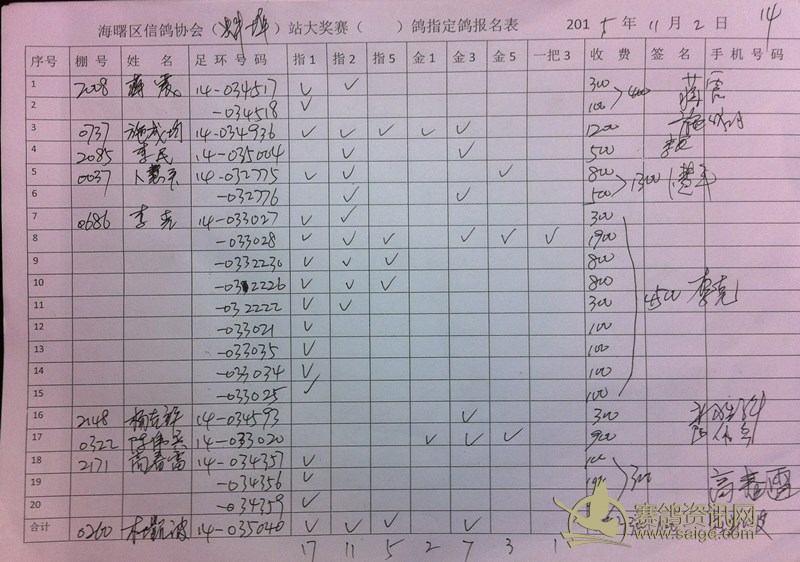 海曙区信鸽协会（ ）站大奖赛（ ）鸽指定鸽报名表 2015年11月2日 14
序号 棚号 姓名 足环号码 指1 指2 指5 金1 金3 金5 一把3 收费 签名 手机号码
1 2008 蒋震 14-034517 ✓ ✓ 300 400 蒋震
2 -034518 ✓ 100
3 0737 施成均 14-034936 ✓ ✓ ✓ ✓ ✓ 1200
4 2085 李民 14-035004 ✓ ✓ 500
5 0037 14-032775 ✓ ✓ ✓ 800 1300
6 -032776 ✓ ✓ 500
7 0686 李克 14-033027 ✓ ✓ 300
8 -033028 ✓ ✓ ✓ ✓ ✓ ✓ 1900
9 -0332230 ✓ ✓ ✓ 800
10 ✓ ✓ ✓ 800 4500 李克
11 -032222 ✓ ✓ 300
12 -033021 ✓ 100
13 -033035 ✓ 100
14 -033034 ✓ 100
15 -033025 ✓ 100
16 2148 14-034593 ✓ 300
17 0322 14-033020 ✓ ✓ ✓ 900
18 2171 高春雷 14-034357 ✓ 100 300 高春雷
19 -034356 ✓ 100
20 -034359 ✓
合计 0260 14-035040 ✓ ✓ ✓ ✓
17 11 5 2 7 3 1
赛鸽资讯网
www.saige.com